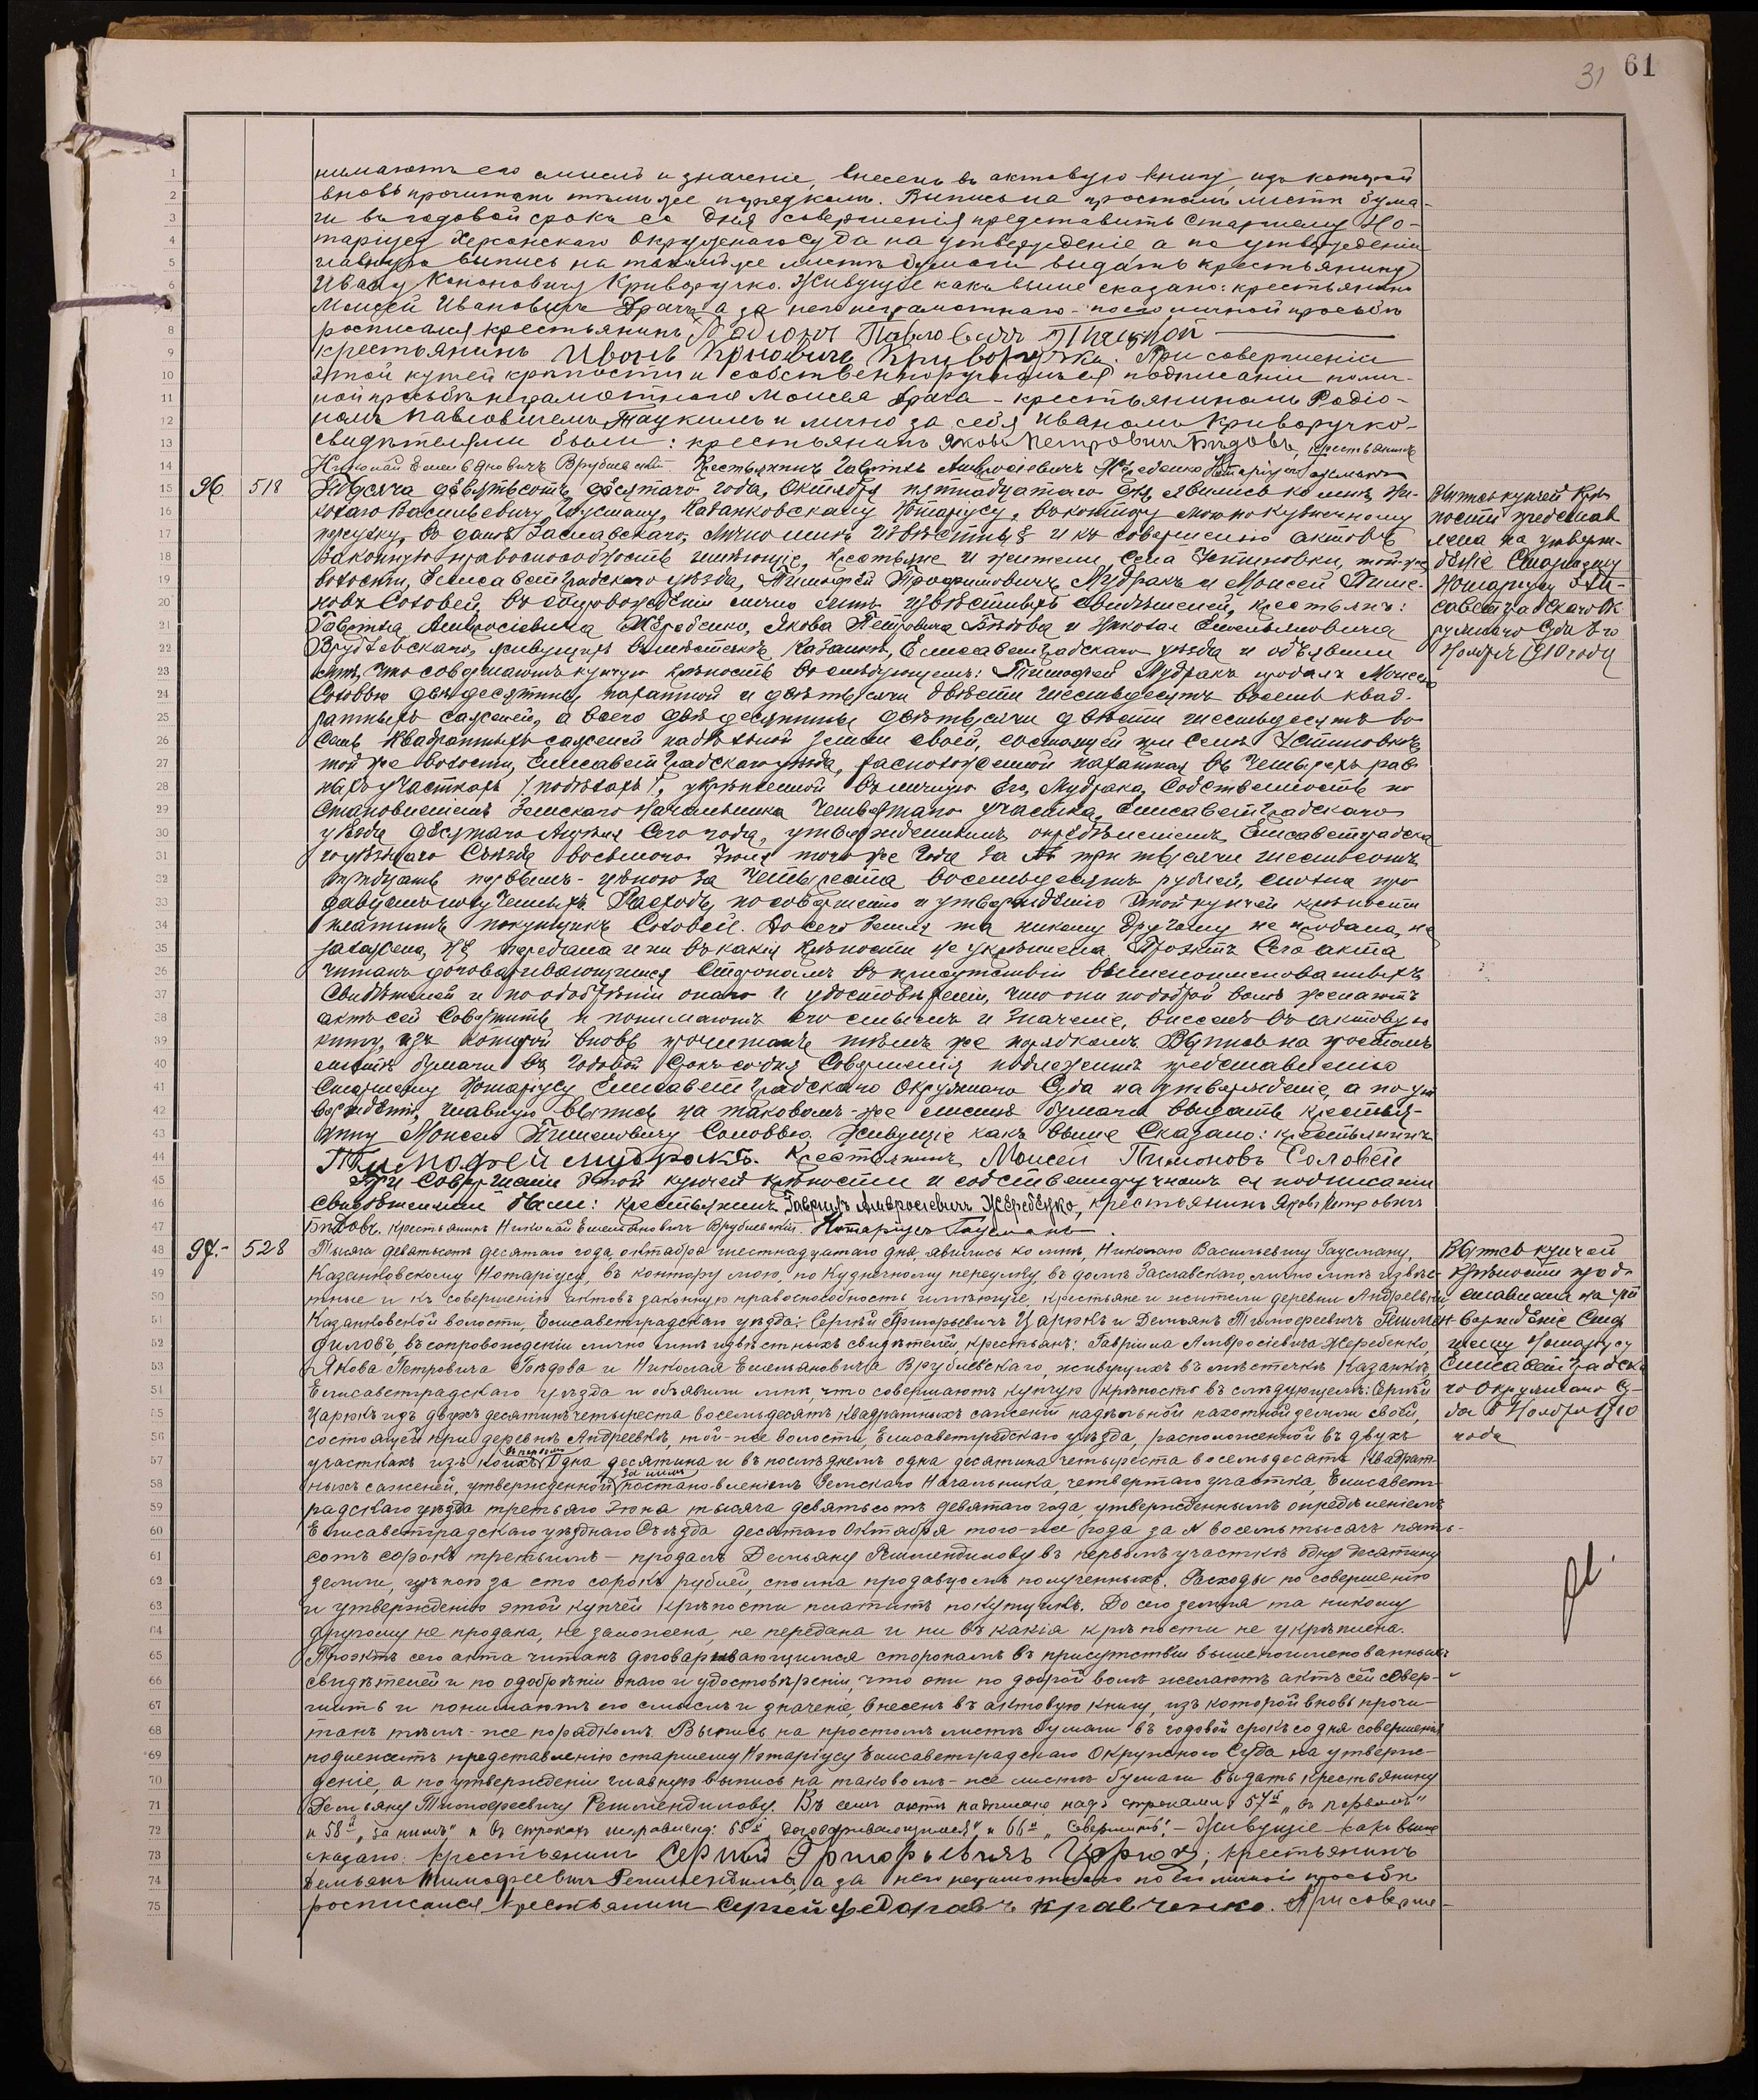 31 61
нимаютъ его смыслъ и значеніе, внесенъ въ актовую книгу, изъ которой
вновь прочитанъ тѣмъ же порядкомъ. Выпись на простомъ листѣ бума-
ги въ годовой срокъ со дня совершенія представить Старшему Но-
таріусу Херсонскаго Окружнаго Суда на утвержденіе а по утвержденіи
главную выпись на таковомъ же листѣ бумаги выдать крестьянину
Ивану Кононовичу Криворучко. Живущіе какъ выше сказано: крестьянинъ
Моисей Ивановичъ Драчъ а за него неграмотнаго - по его личной просьбѣ
росписался крестьянинъ Родіонъ Павловичъ
крестьянинъ Иванъ Криворучко. При совершеніи
этой купчей крѣпости и собственноручномъ ея подписаніи
ной просьбѣ неграмотнаго Моисея Драча - крестьяниномъ Родіо-
номъ Павловичемъ и лично за себя Иваномъ Криворучко-
свидѣтелями были: крестьянинъ Яковъ Петровичъ Бѣдовъ, крестьянинъ
Николай Емельяновичъ Врублевскій. Крестьянинъ Гавріилъ Амвросіевичъ Жеребенко Нотаріусъ Гаусманъ
96 518 Тысяча девятьсотъ десятаго года, Октября пятнадцатаго дня, явились ко мнѣ, Ни-
колаю Васильевичу Гаусману, Казанковскому Нотаріусу, въ контору мою по Кузнечному
переулку, въ домѣ Заславскаго, лично мнѣ извѣстные и къ совершенію актовъ
законную правоспособность имѣющіе, крестьяне и жители села Устиновки, той же
волости, Елисаветградскаго уѣзда, Тимофей Трофимовичъ Мудракъ и Моисей Пиме-
новъ Соловей, въ сопровожденіи лично мнѣ извѣстныхъ свидѣтелей, крестьянъ:
Гавріила Амвросіевича Жеребенко, Якова Петровича Бѣдова и Николая Емельяновича
Врублевскаго, живущихъ въ мѣстечкѣ Казанкѣ, Елисаветградскаго уѣзда и объявили
мнѣ, что совершаютъ купчую крѣпость въ слѣдующемъ: Тимофей Мудракъ продалъ Моисею
Соловью двѣ десятины пахатной и двѣ тысячи двѣсти шестьдесятъ восемь квад-
ратныхъ саженей, а всего двѣ десятины двѣ тысячи двѣсти шестьдесятъ во-
семь квадратныхъ саженей надѣльной земли своей, состоящей при селѣ Устиновкѣ,
той же волости, Елисаветградскаго уѣзда, расположенной пахатная въ четырехъ раз-
ныхъ участкахъ /поляхъ/, укрѣпленной въ личную его, Мудрака, собственность по-
становленіемъ Земскаго Начальника Четвертаго участка, Елисаветградскаго
уѣзда десятаго Апрѣля сего года, утвержденнымъ опредѣленіемъ Елисаветградска-
го уѣзднаго Съѣзда восьмого Іюля того же года за № три тысячи шестьсотъ
тридцать первымъ - цѣною за четыреста восемьдесятъ рублей, сполна про-
давцомъ полученныхъ. Расходы по совершенію и утвержденію этой купчей крѣпости
платитъ покупщикъ Соловей. До сего земля та никому другому не продана, не
заложена, не передана и ни въ какія крѣпости не укрѣплена. Проэктъ сего акта
читанъ договаривающимся сторонамъ въ присутствіи вышепоименованныхъ
свидѣтелей и по одобреніи онаго и удостовѣреніи, что они по доброй волѣ желаютъ
актъ сей совершить и понимаютъ его смыслъ и значеніе, внесенъ въ актовую
книгу, изъ которой вновь прочитанъ тѣмъ же порядкомъ. Выпись на простомъ
листѣ бумаги въ годовой срокъ со дня совершенія подлежитъ представленію
Старшему Нотаріусу Елисаветградскаго Окружнаго Суда на утвержденіе, а по ут-
вержденіи, главную выпись на таковомъ-же листѣ бумаги выдать крестья-
нину Моисею Пименовичу Соловью. Живущіе какъ выше сказано: крестьянинъ
Тимофей Мудракъ. Крестьянинъ Моисей Пимоновъ Соловей
При совершеніи этой купчей крѣпости и собственноручномъ ея подписаніи
свидѣтелями были: крестьянинъ Гавріилъ Амвросіевичъ Жеребенко, крестьянинъ Яковъ Петровичъ
Бѣдовъ, крестьянинъ Николай Емельяновичъ Врублевскій. Нотаріусъ Гаусманъ.
Выпись купчей крѣ-
пости представ
лена на утверж-
деніе Старшему
Нотаріусу Ели-
саветградскаго Ок
ружнаго Суда 8го
Ноября 1910 году
97.- 528 Тысяча девятьсотъ десятаго года, октября шестнадцатаго дня, явились ко мнѣ, Николаю Васильевичу Гаусману,
Казанковскому Нотаріусу, въ контору мою, по Кузнечному переулку, въ домѣ Заславскаго, лично мнѣ извѣс-
тные и къ совершенію актовъ законную правоспособность имѣющіе, крестьяне и жители деревни Андреевки,
Казанковской волости, Елисаветградскаго уѣзда: Сергѣй Григорьевичъ Царюкъ и Демьянъ Тимофеевичъ Решмен-
диловъ, въ сопровожденіи лично мнѣ извѣстныхъ свидѣтелей, крестьянъ: Гавріила Амвросіевича Жеребенко,
Якова Петровича Бѣдова и Николая Емельяновича Врублевскаго, живущихъ въ мѣстечкѣ Казанкѣ,
Елисаветградскаго уѣзда и объявили мнѣ, что совершаютъ купчую крѣпость въ слѣдующемъ: Сергѣй
Царюкъ изъ двухъ десятинъ четыреста восемьдесятъ квадратныхъ саженей надѣльной пахотной земли своей,
состоящей при деревнѣ Андреевкѣ, той-же волости, Елисаветградскаго уѣзда, расположенной въ двухъ
въ первомъ
участкахъ изъ коихъ одна десятина и въ послѣднемъ одна десятина четыреста восемьдесятъ квадрат-
за нимъ
ныхъ саженей, утвержденной постановленіемъ Земскаго Начальника, четвертаго участка, Елисавет-
градскаго уѣзда третьяго Іюна тысяча девятьсотъ девятаго года, утвержденнымъ опредѣленіемъ
Елисаветградскаго уѣзднаго Съѣзда десятаго Октября того-же года за № восемь тысячъ пять-
сотъ сорокъ третьимъ - продалъ Демьяну Решмендилову въ первомъ участкѣ одну десятину
земли, цѣною за сто сорокъ рублей, сполна продавцомъ полученныхъ. Расходы по совершенію
и утвержденію этой купчей крѣпости платитъ покупщикъ. До сего земля та никому
другому не продана, не заложена, не передана и ни въ какія крѣпости не укрѣплена.
Проэктъ сего акта читанъ договаривающимся сторонамъ въ присутствіи вышепоименованныхъ
свидѣтелей и по одобреніи онаго и удостовѣреніи, что они по доброй волѣ желаютъ актъ сей совер-
шить и понимаютъ его смыслъ и значеніе, внесенъ въ актовую книгу, изъ которой вновь прочи-
танъ тѣмъ-же порядкомъ. Выпись на простомъ листѣ бумаги въ годовой срокъ со дня совершенія
подлежитъ представленію старшему Нотаріусу Елисаветградскаго Окружного Суда на утверж-
деніе, а по утвержденіи главную выпись на таковомъ-же листѣ бумаги выдать крестьянину
Демьяну Тимофеевичу Решмендилову. Въ семъ актѣ надписано надъ строками 57й „въ первомъ"
и 58й „за нимъ" и въ строкахъ исправлено: 65й „договаривающимся" и 66й „совершить". - Живущіе какъ выше
сказано: крестьянинъ Сергій Григорьевичъ Царюкъ, крестьянинъ
Демьянъ Тимофеевичъ Решмендиловъ, а за него неграмотнаго по его личной просьбѣ
росписался крестьянинъ Сергей Федоровъ Кравченко. При соверше-
Выпись купчей
крѣпости пред-
ставлена на ут
вержденіе Стар
шему Нотаріусу
Елисаветградска
го Окружнаго Су-
да 8 Ноября 1910
года
1
2
3
4
5
6
7
8
9
10
11
12
13
14
15
16
17
18
19
20
21
22
23
24
25
26
27
28
29
30
31
32
33
34
35
36
37
38
39
40
41
42
43
44
45
46
47
48
49
50
51
52
53
54
55
56
57
58
59
60
61
62
63
64
65
66
67
68
69
70
71
72
73
74
75